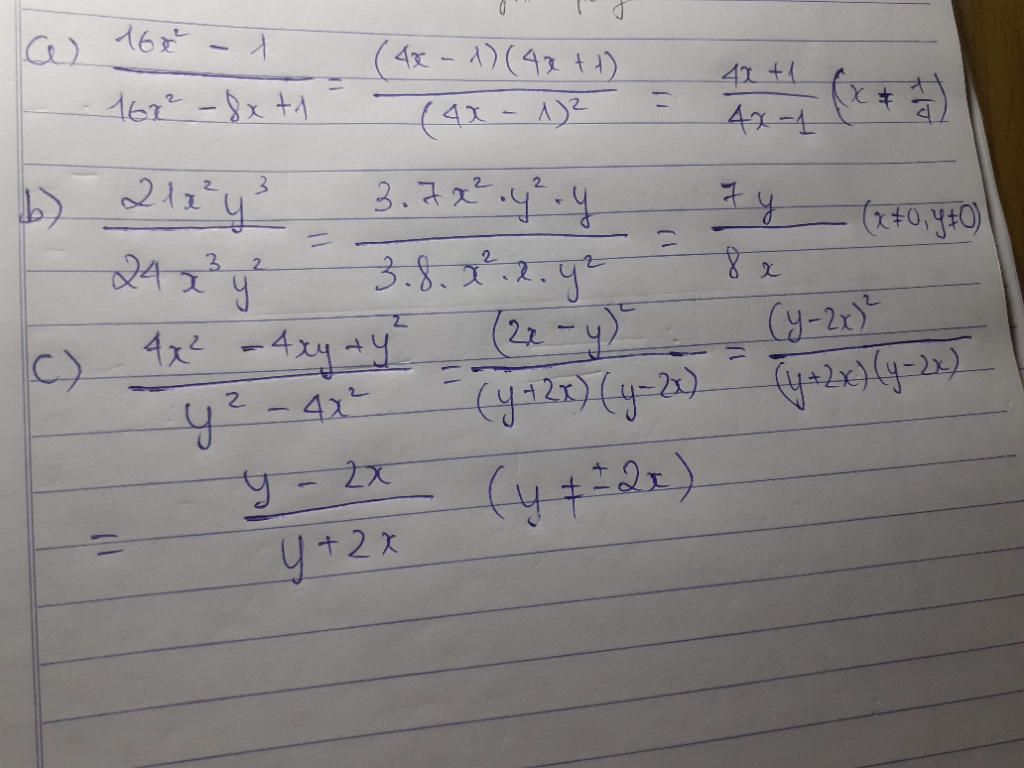 a) (16x² - 1)/(16x² - 8x + 1) = ((4x - 1)(4x + 1))/((4x - 1)²) = (4x + 1)/(4x - 1) (x ≠ 1/4)
b) (21x²y³)/(24x³y²) = (3.7x².y².y)/(3.8.x².x.y²) = (7y)/(8x) (x≠0, y≠0)
c) (4x² - 4xy + y²)/(y² - 4x²) = ((2x - y)²)/((y+2x)(y-2x)) = ((y-2x)²)/((y+2x)(y-2x))
= (y - 2x)/(y + 2x) (y ≠ ±2x)